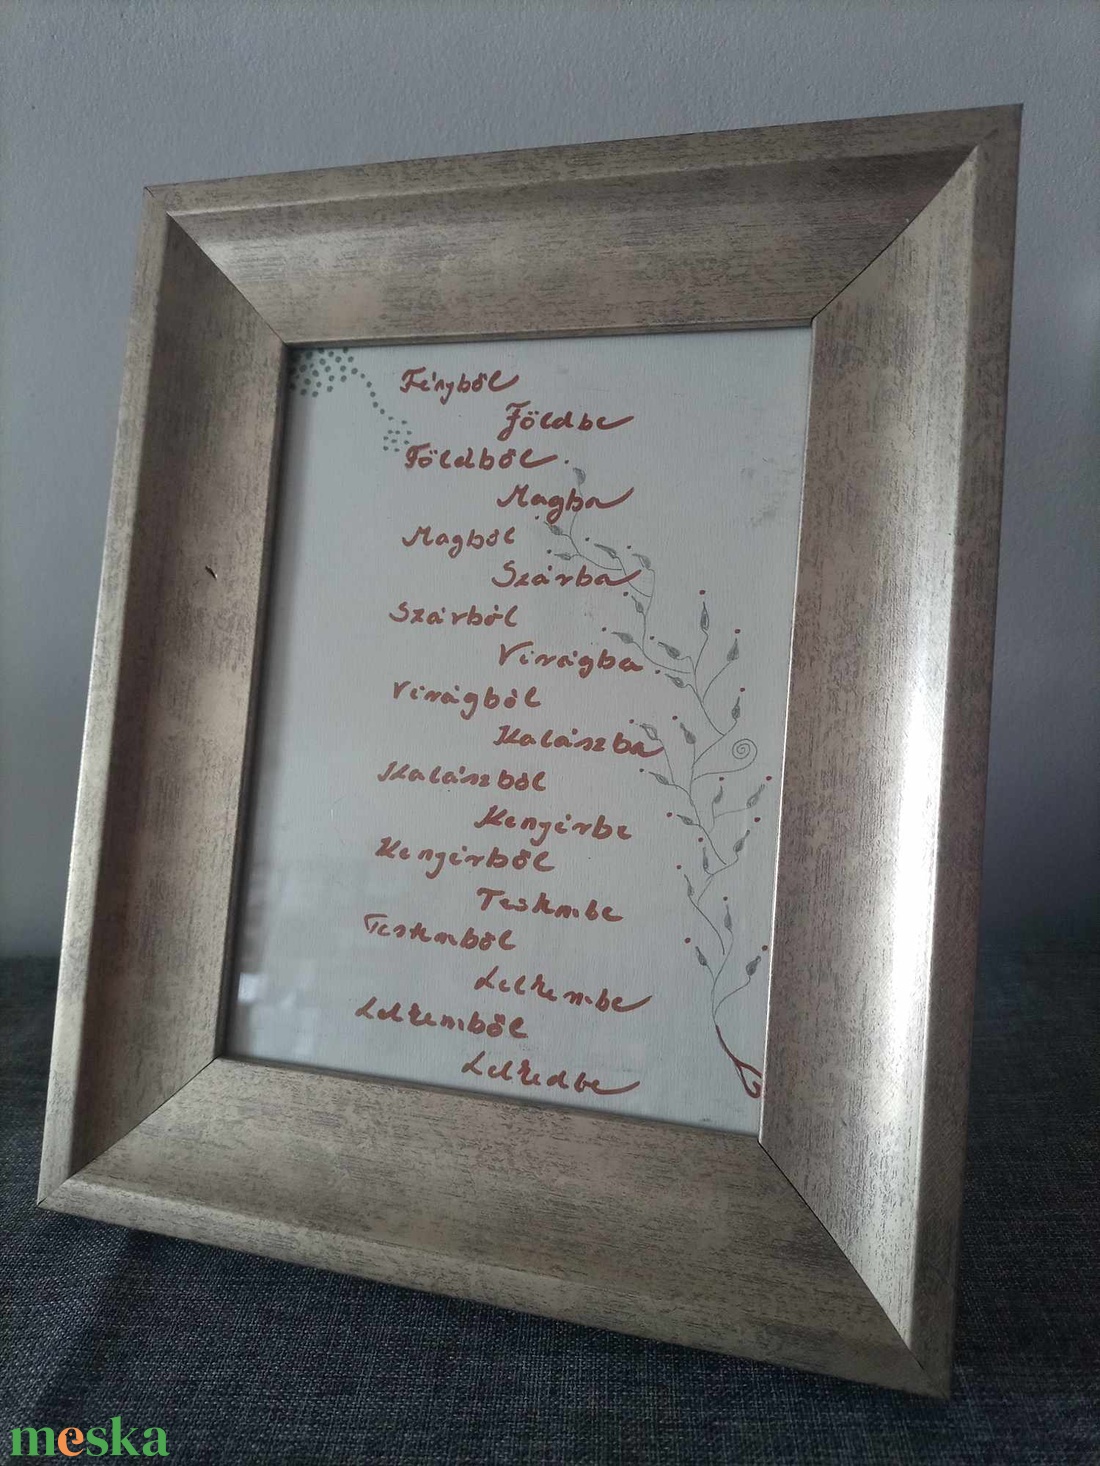 Fényből
Földbe
Földből
Magba
Magból
Szárba
Szárból
Virágba
Virágból
Kalászba
Kalászból
Kenyérbe
Kenyérből
Testembe
Testemből
Lelkembe
Lelkemből
Lelkedbe
meska